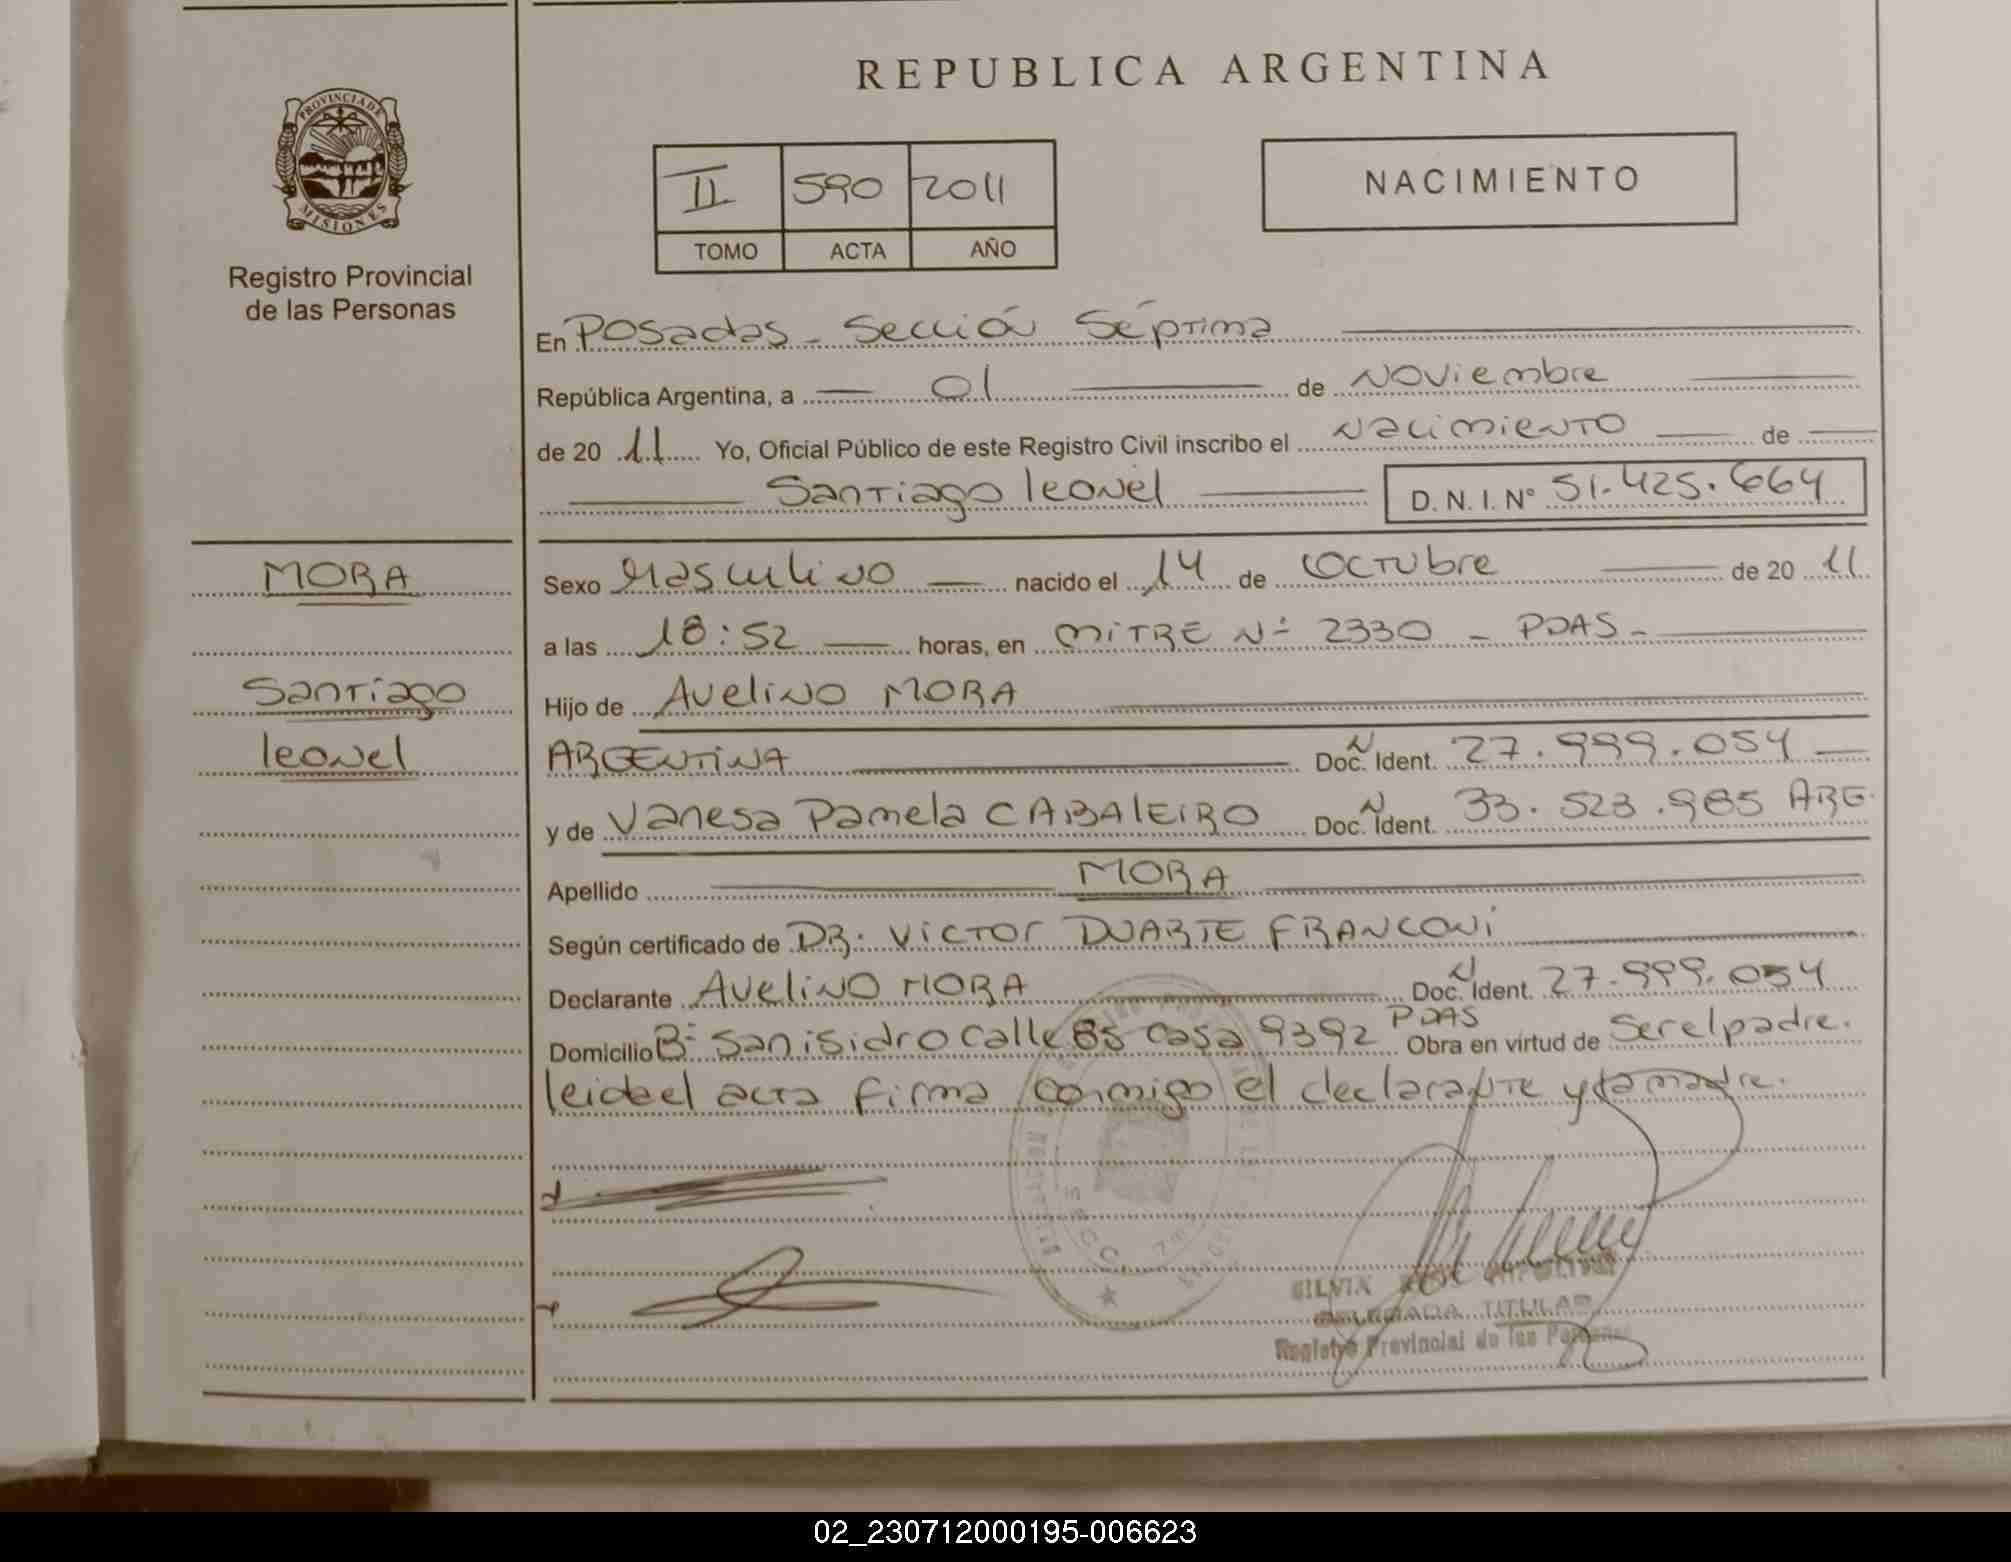 REPUBLICA ARGENTINA
PROVINCIA DE
MISIONES
Registro Provincial
de las Personas
II 590 2011
TOMO ACTA AÑO
NACIMIENTO
En Posadas - Sección Séptima
República Argentina, a 01 de Noviembre
de 20 11 Yo, Oficial Público de este Registro Civil inscribo el Nacimiento de
Santiago leonel D. N. I. N° 51.425.664
MORA
Santiago
leonel
Sexo Masculino nacido el 14 de Octubre de 20 11
a las 18:52 horas, en MITRE N° 2330 - PDAS -
Hijo de Avelino MORA
ARGENTINA Doc. N Ident. 27.999.054
y de Vanesa Pamela CABALEIRO Doc. N Ident. 33.523.985 ARG.
Apellido MORA
Según certificado de DR. VICTOR DUARTE FRANCONI
Declarante Avelino MORA Doc. N Ident. 27.999.054
Domicilio B° San isidro calle 85 casa 9392 PDAS Obra en virtud de Ser el padre.
leida el acta firma conmigo el declarante y la madre.
SILVIA
DELEGADA TITULAR
Registro Provincial de las Personas
02_230712000195-006623